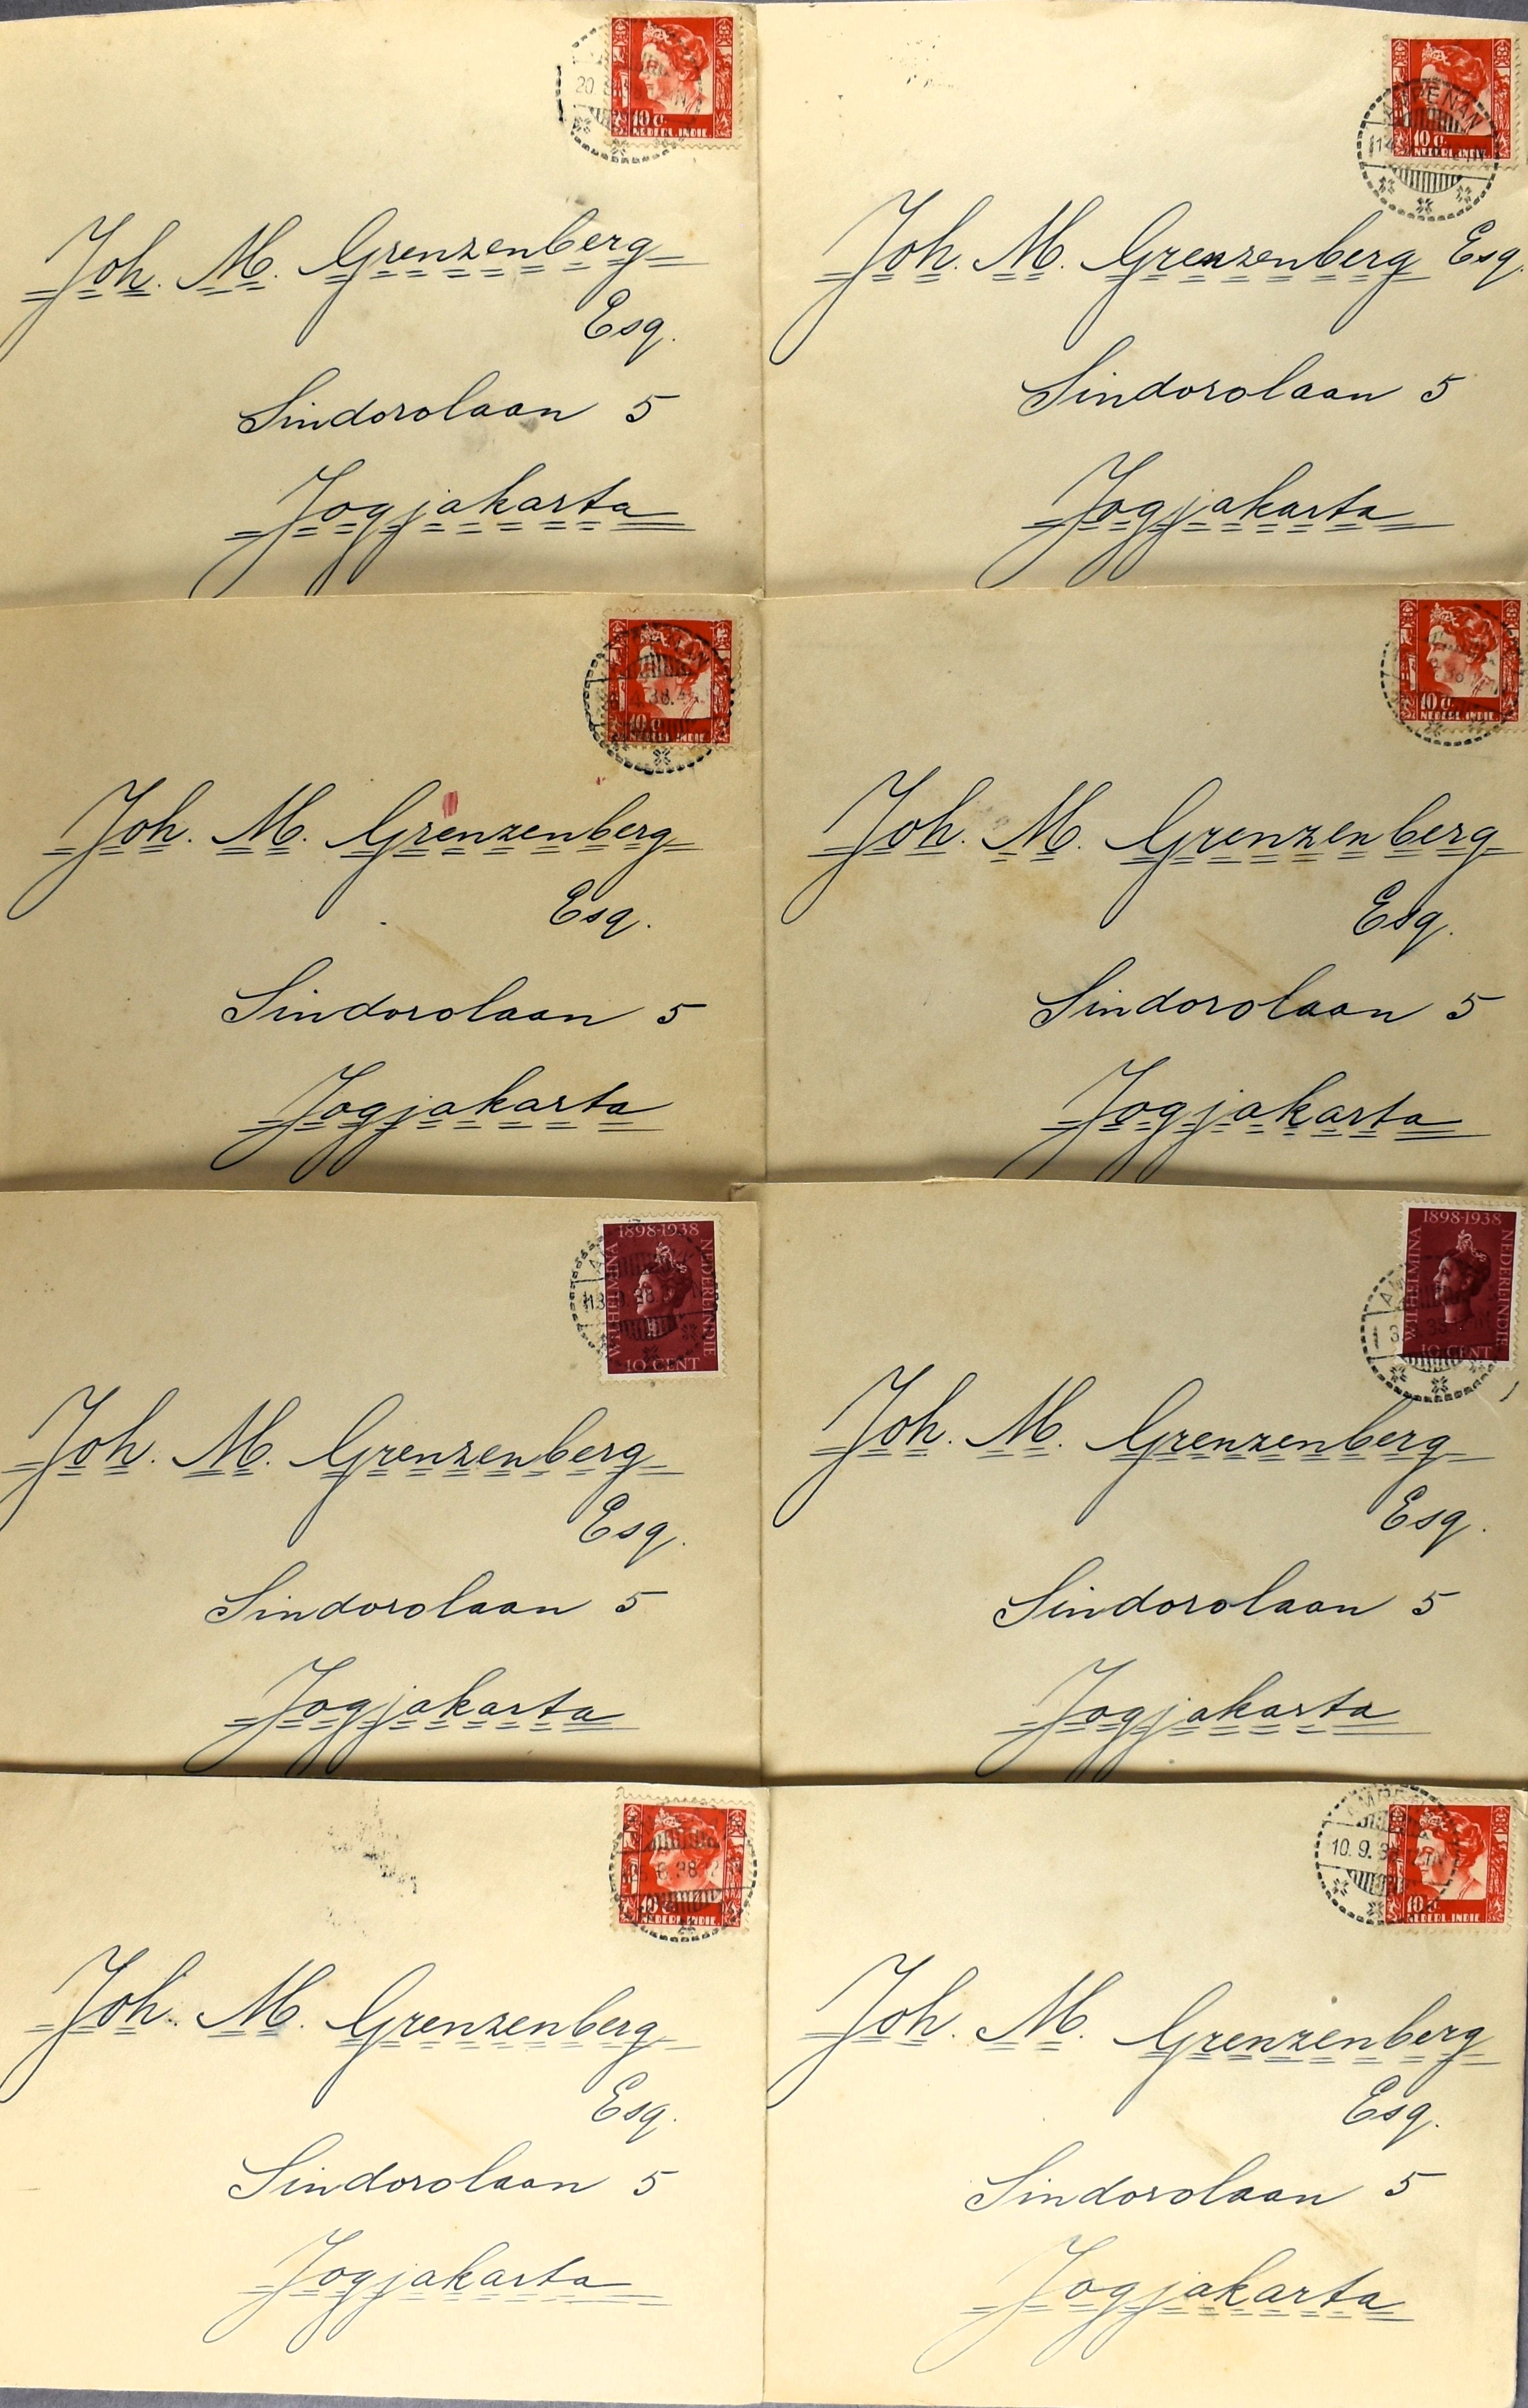 10 c.
NEDERL. INDIE
20
Joh. M. Grenzenberg
Esq.
Sindorolaan 5
Jogjakarta
AMPENAN
14
10 c.
NEDERL. INDIE
Joh. M. Grenzenberg Esq.
Sindorolaan 5
Jogjakarta
10 c.
NEDERL. INDIE
Joh. M. Grenzenberg
Esq.
Sindorolaan 5
Jogjakarta
10 c.
NEDERL. INDIE
Joh. M. Grenzenberg
Esq.
Sindorolaan 5
Jogjakarta
1898-1938
WILHELMINA
NEDERL INDIE
10 CENT
Joh. M. Grenzenberg
Esq.
Sindorolaan 5
Jogjakarta
1898-1938
WILHELMINA
NEDERL INDIE
10 CENT
Joh. M. Grenzenberg
Esq.
Sindorolaan 5
Jogjakarta
10 c.
NEDERL. INDIE
Joh. M. Grenzenberg
Esq.
Sindorolaan 5
Jogjakarta
10.9.38
10 c.
NEDERL. INDIE
Joh. M. Grenzenberg
Esq.
Sindorolaan 5
Jogjakarta